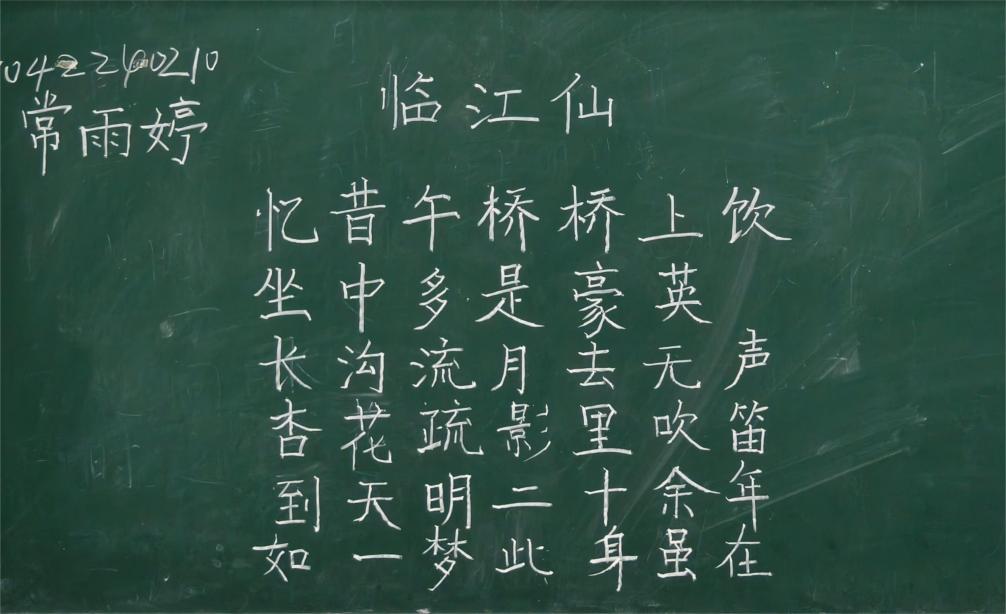 0422240210
常雨婷
临江仙
忆昔午桥桥上饮
坐中多是豪英
长沟流月去无声
杏花疏影里吹笛
到天明二十余年
如一梦此身虽在